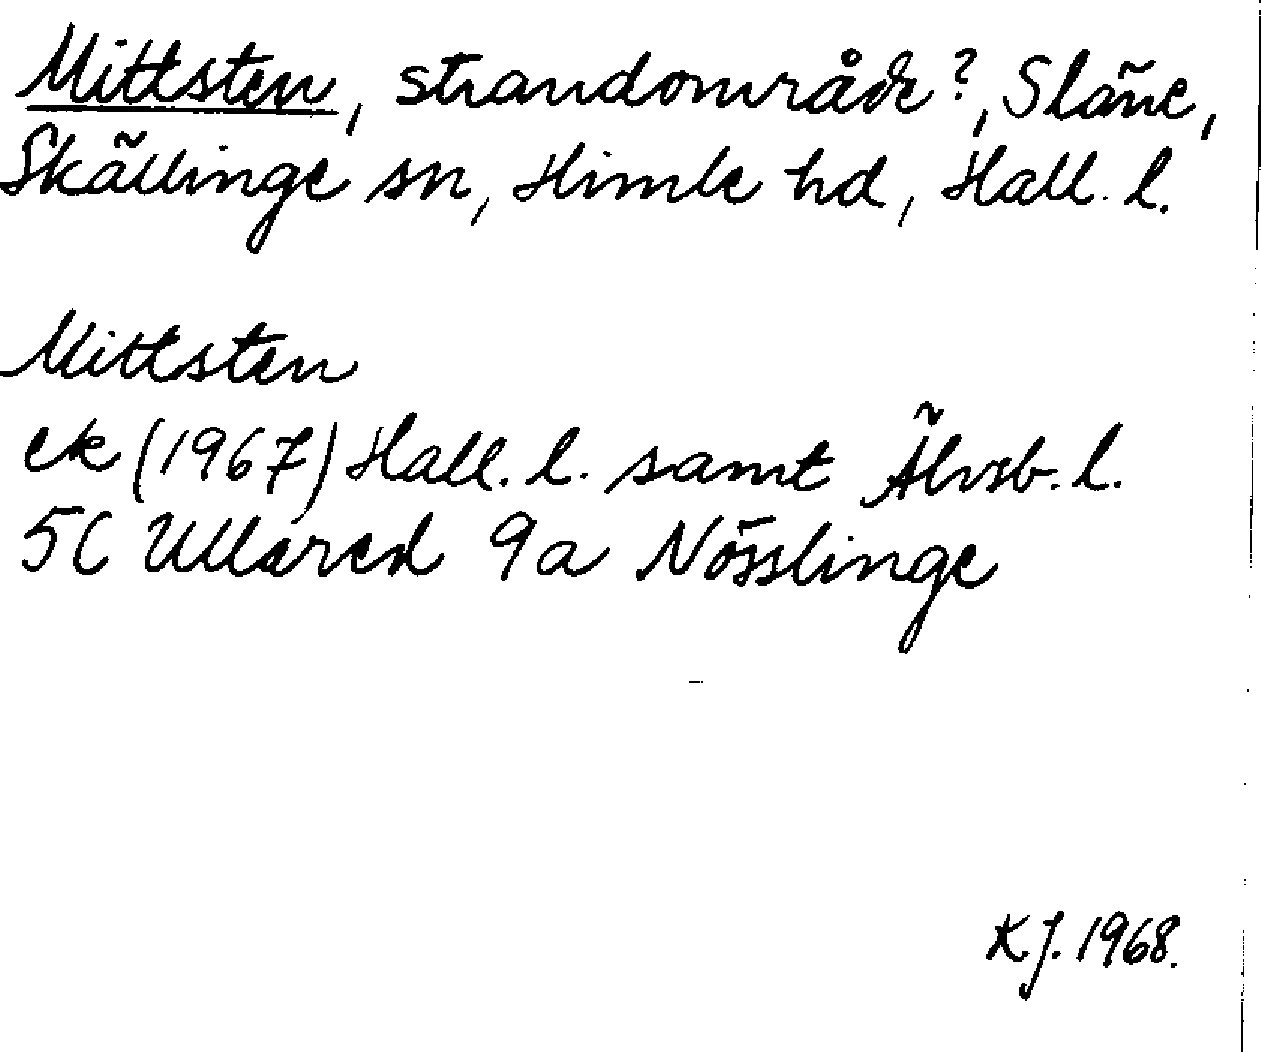 Mittsten, strandområde?, Släne,
Skällinge sn, Himle hd, Hall. l.
Mittsten
ek (1967) Hall. l. samt Älvsb. l.
5C Ullared 9a Nösslinge
K.J. 1968.